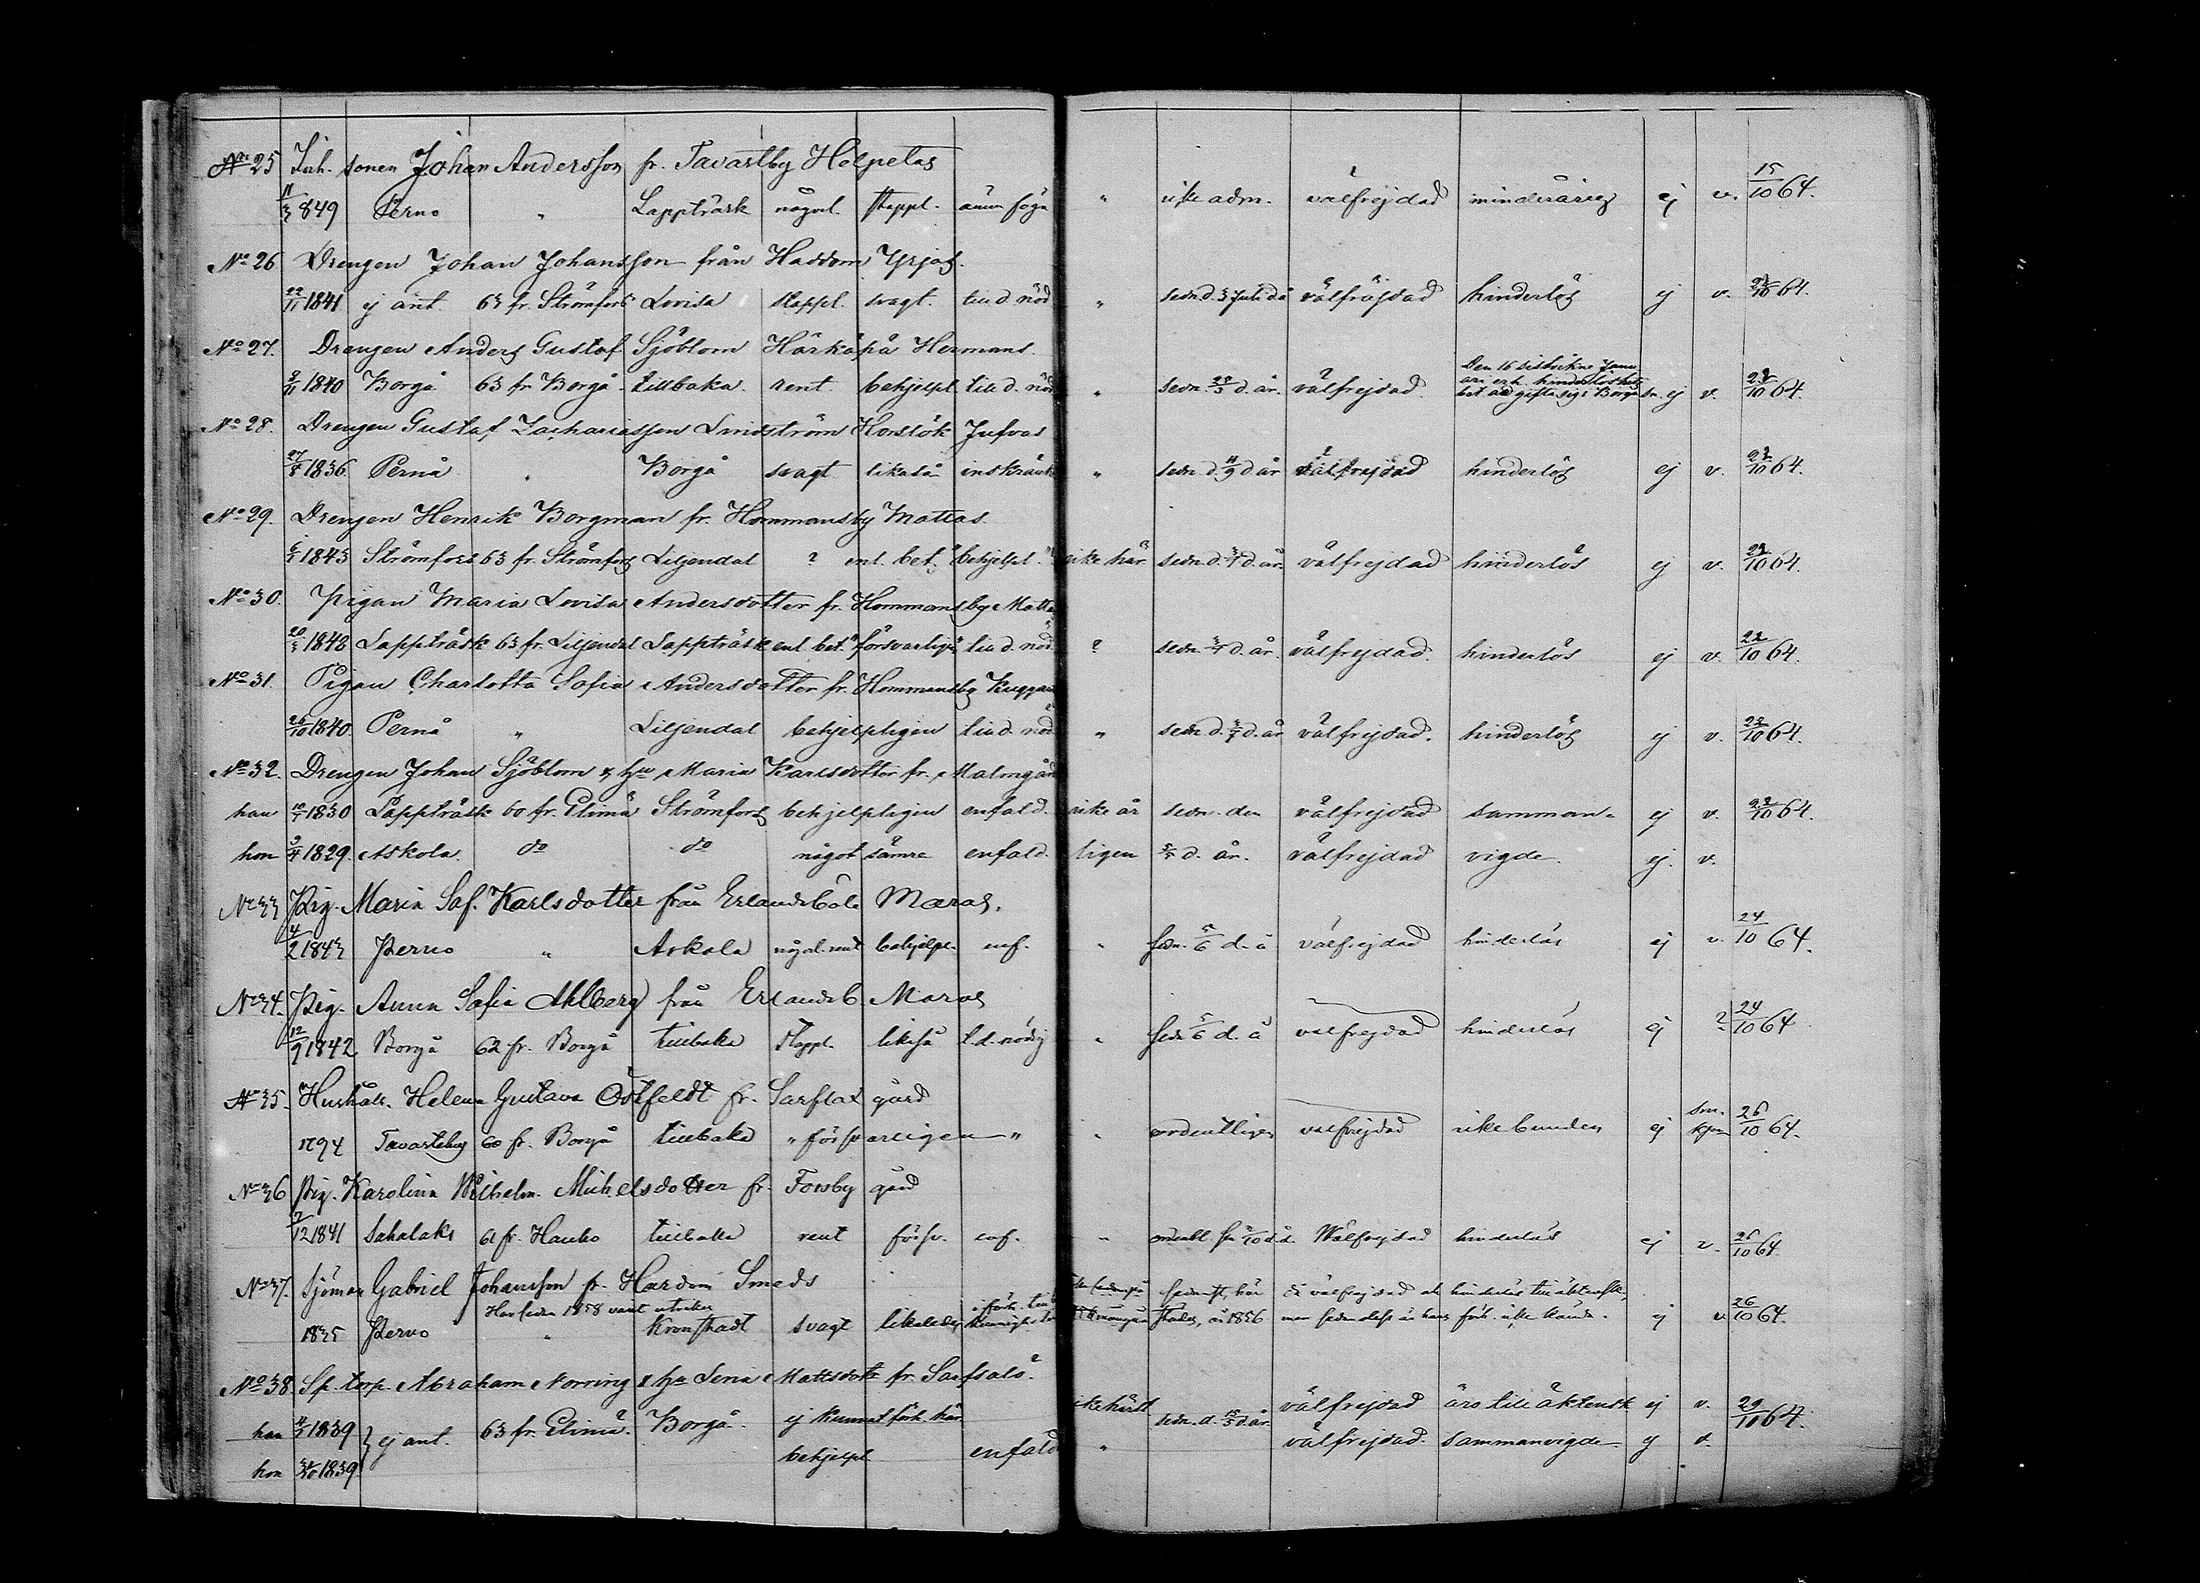 No 25 Inh. sonen Johan Andersson fr. Tavastby Hölpetas
11/3 849 Perno " Lappträsk någorl. stappl. ännu föga " icke adm. välfrejdad minderårig ej v. 15/10 64.
No 26 Drengen Johan Johansson från Haddom Yrjas.
22/11 1841 ej ant. 63 fr. Strömfors Lovisa stappl. svagt. till d. nöd " sedn. d. 3 Juli d å välfräjdad hinderlös ej v. 22/10 64.
No 27. Drengen Anders Gustaf Sjöblom Härkäpä Hermans.
8/11 1840 Borgå 63 fr Borgå tillbaka. rent behjelpl. till d. nöd " sedn. d. år. välfrejdad. Den 16 sistlidne Janu ari erh. hinderlöshets bet. att gifta sig i Borgå sn. ej v. 22/10 64.
No 28. Drengen Gustaf Zachariasson Lindström Horslök Jufvas
27/8 1836 Pernå " Borgå svagt likaså inskränkt " sedn. d. 11/9 d år välfrejdad hinderlös ej v. 22/10 64.
No 29. Drengen Henrik Borgman fr. Hommansby Mattas.
1843 Strömfors 63 fr. Strömfors Liljendal ? enl. bet. "behjelpl." icke här sedn. d. d. år. välfrejdad hinderlös ej v. 22/10 64.
No 30. Pigan Maria Lovisa Andersdotter fr. Hommansby Mattas
20/ 1843 Lappträsk 63 fr. Liljendal Lappträsk enl. bet. "försvarligen" till d. nöd. ? sedn. d. år. välfrejdad. hinderlös ej v. 22/10 64.
No 31. Pigan Charlotta Sofia Andersdotter fr. Hommansby Kuggas
26/10 1840. Pernå " Liljendal behjelpligen till d. nöd. " sedn. d. d. år välfrejdad. hinderlös ej v. 22/10 64.
No 32. Drengen Johan Sjöblom & hu Maria Karlsdotter fr. Malmgård
han 10/ 1830 Lappträsk 60 fr. Elimä Strömfors behjelpligen enfald. icke är sedn. den välfrejdad samman- ej v. 22/10 64.
hon 1829. Askola. do do något sämre enfald. ligen d. år. välfrejdad vigde. ej. v.
No 33 Pig. Maria Sof. Karlsdotter från Erlandsböle Maras.
4/2 1843 Perno " Askola någorl. rent behjelpl. enf. " sedn. 5/6 d. å välfrejdad hinderlös ej v. 24/10 64.
No 34. Pig. Anna Sofia Ahlberg från Erlandsb. Maras
12/9 1842 Borgå 62 fr. Borgå tillbaka stappl. likaså t. d. nödig " sedn 5/6 d. å välfrejdad hinderlös ej ? 24/10 64
No 35. Hushåll. Helena Gustava Östfeldt fr. Sarflax gård
1794 Tavasteby 60 fr. Borgå tillbaka " försvarligen " " ordentligen välfrejdad icke bunden ej 26/10 64.
No 36 Pig. Karolina Wilhelm. Michelsdotter fr. Forsby gård
7/12 1841 Sahalaks 61 fr. Hauho tillbaka rent försv. enf. " ordentl. Wälfrejdad hinderlös ej v. 26/10 64
No 37. Sjöman Gabriel Johansson fr. Hardom Smeds
Har sedan 1858 varit utrikes
1835 Perno " Kronstadt svagt likaledes år 1856 men sedan dess är hans förh. icke känd. ej v 26/10 64.
No 38. Sp. torp. Abraham Norring & hu Lena Mattsdotr fr. Sarfsalö.
han 1839 } ej ant. 63 fr. Elimä. Borgå. ej kunnat förh. här icke härst. sedn. d. d år. välfrejdad äro till äktensk ej v. 29/10 64.
hon 1839 behjelpl enfald " välfrejdad. sammanvigde ej v.